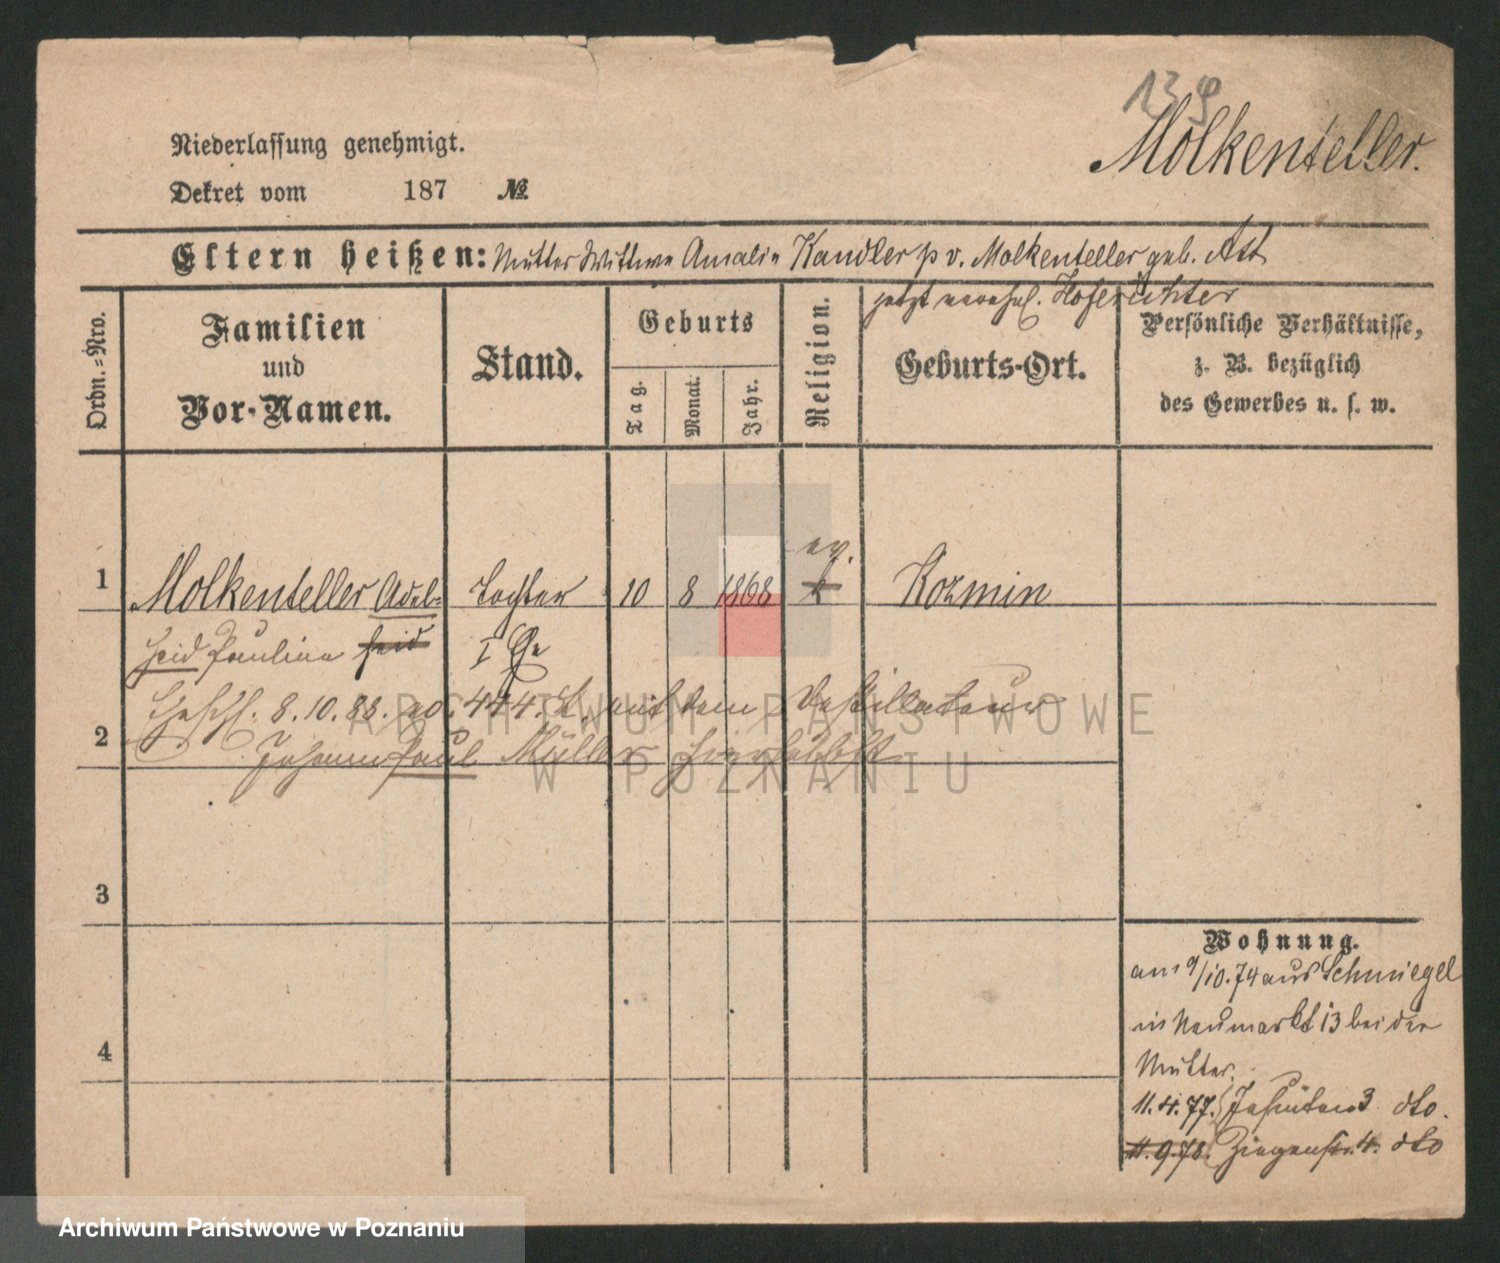 139
Molkenteller.
Niederlassung genehmigt.
Dekret vom 187 №
Eltern heißen: Mutter Wittwe Amalie Kandler p v. Molkenteller geb. Ast
jetzt verehel. Hoferichter
Ordn.-Nro.
Familien und Vor-Namen.
Stand.
Geburts
Tag.
Monat.
Jahr.
Religion.
Geburts-Ort.
Persönliche Verhältnisse,
z. B. bezüglich
des Gewerbes u. s. w.
ev.
1 Molkenteller Adel- Tochter 10 8 1868 k Kozmin
heid Pauline heid I Ehe
Ehesch. 8.10.88. No. 444. St. mit dem Destillateur
2 Johann Paul Müller hierselbst
3
4
Wohnung.
am 9/10.74 aus Schmiegel
in Neumarkt 13 bei der
Mutter.
11.4.77. Jesuiten 3 dto.
11.9.78. Ziegenstr. 4. dto
ARCHIWUM PAŃSTWOWE
W POZNANIU
Archiwum Państwowe w Poznaniu